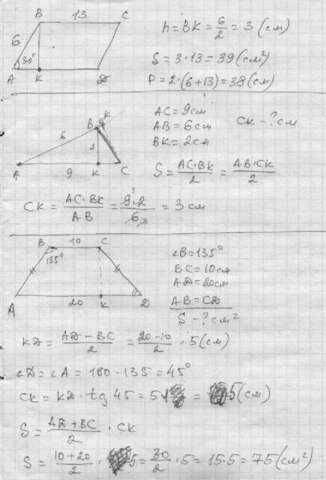 B 13 C
6
30°
A K D
h = BK = 6/2 = 3 (см)
S = 3·13 = 39 (см²)
P = 2·(6+13) = 38 (см)
B K
6 2
A 9 K C
AC = 9см
AB = 6см
BK = 2см
CK - ? см
S = AC·BK/2 = AB·CK/2
CK = AC·BK/AB = 9·2/6 = 3см
B 10 C
135°
A 20 K D
∠B = 135°
BC = 10см
AD = 20см
AB = CD
S - ? см²
KD = AD - BC/2 = 20-10/2 = 5 (см)
∠D = ∠A = 180 - 135 = 45°
CK = KD · tg 45 = 5·1 = 5 (см)
S = AD + BC/2 · CK
S = 10+20/2 · 5 = 30/2 · 5 = 15·5 = 75 (см²)